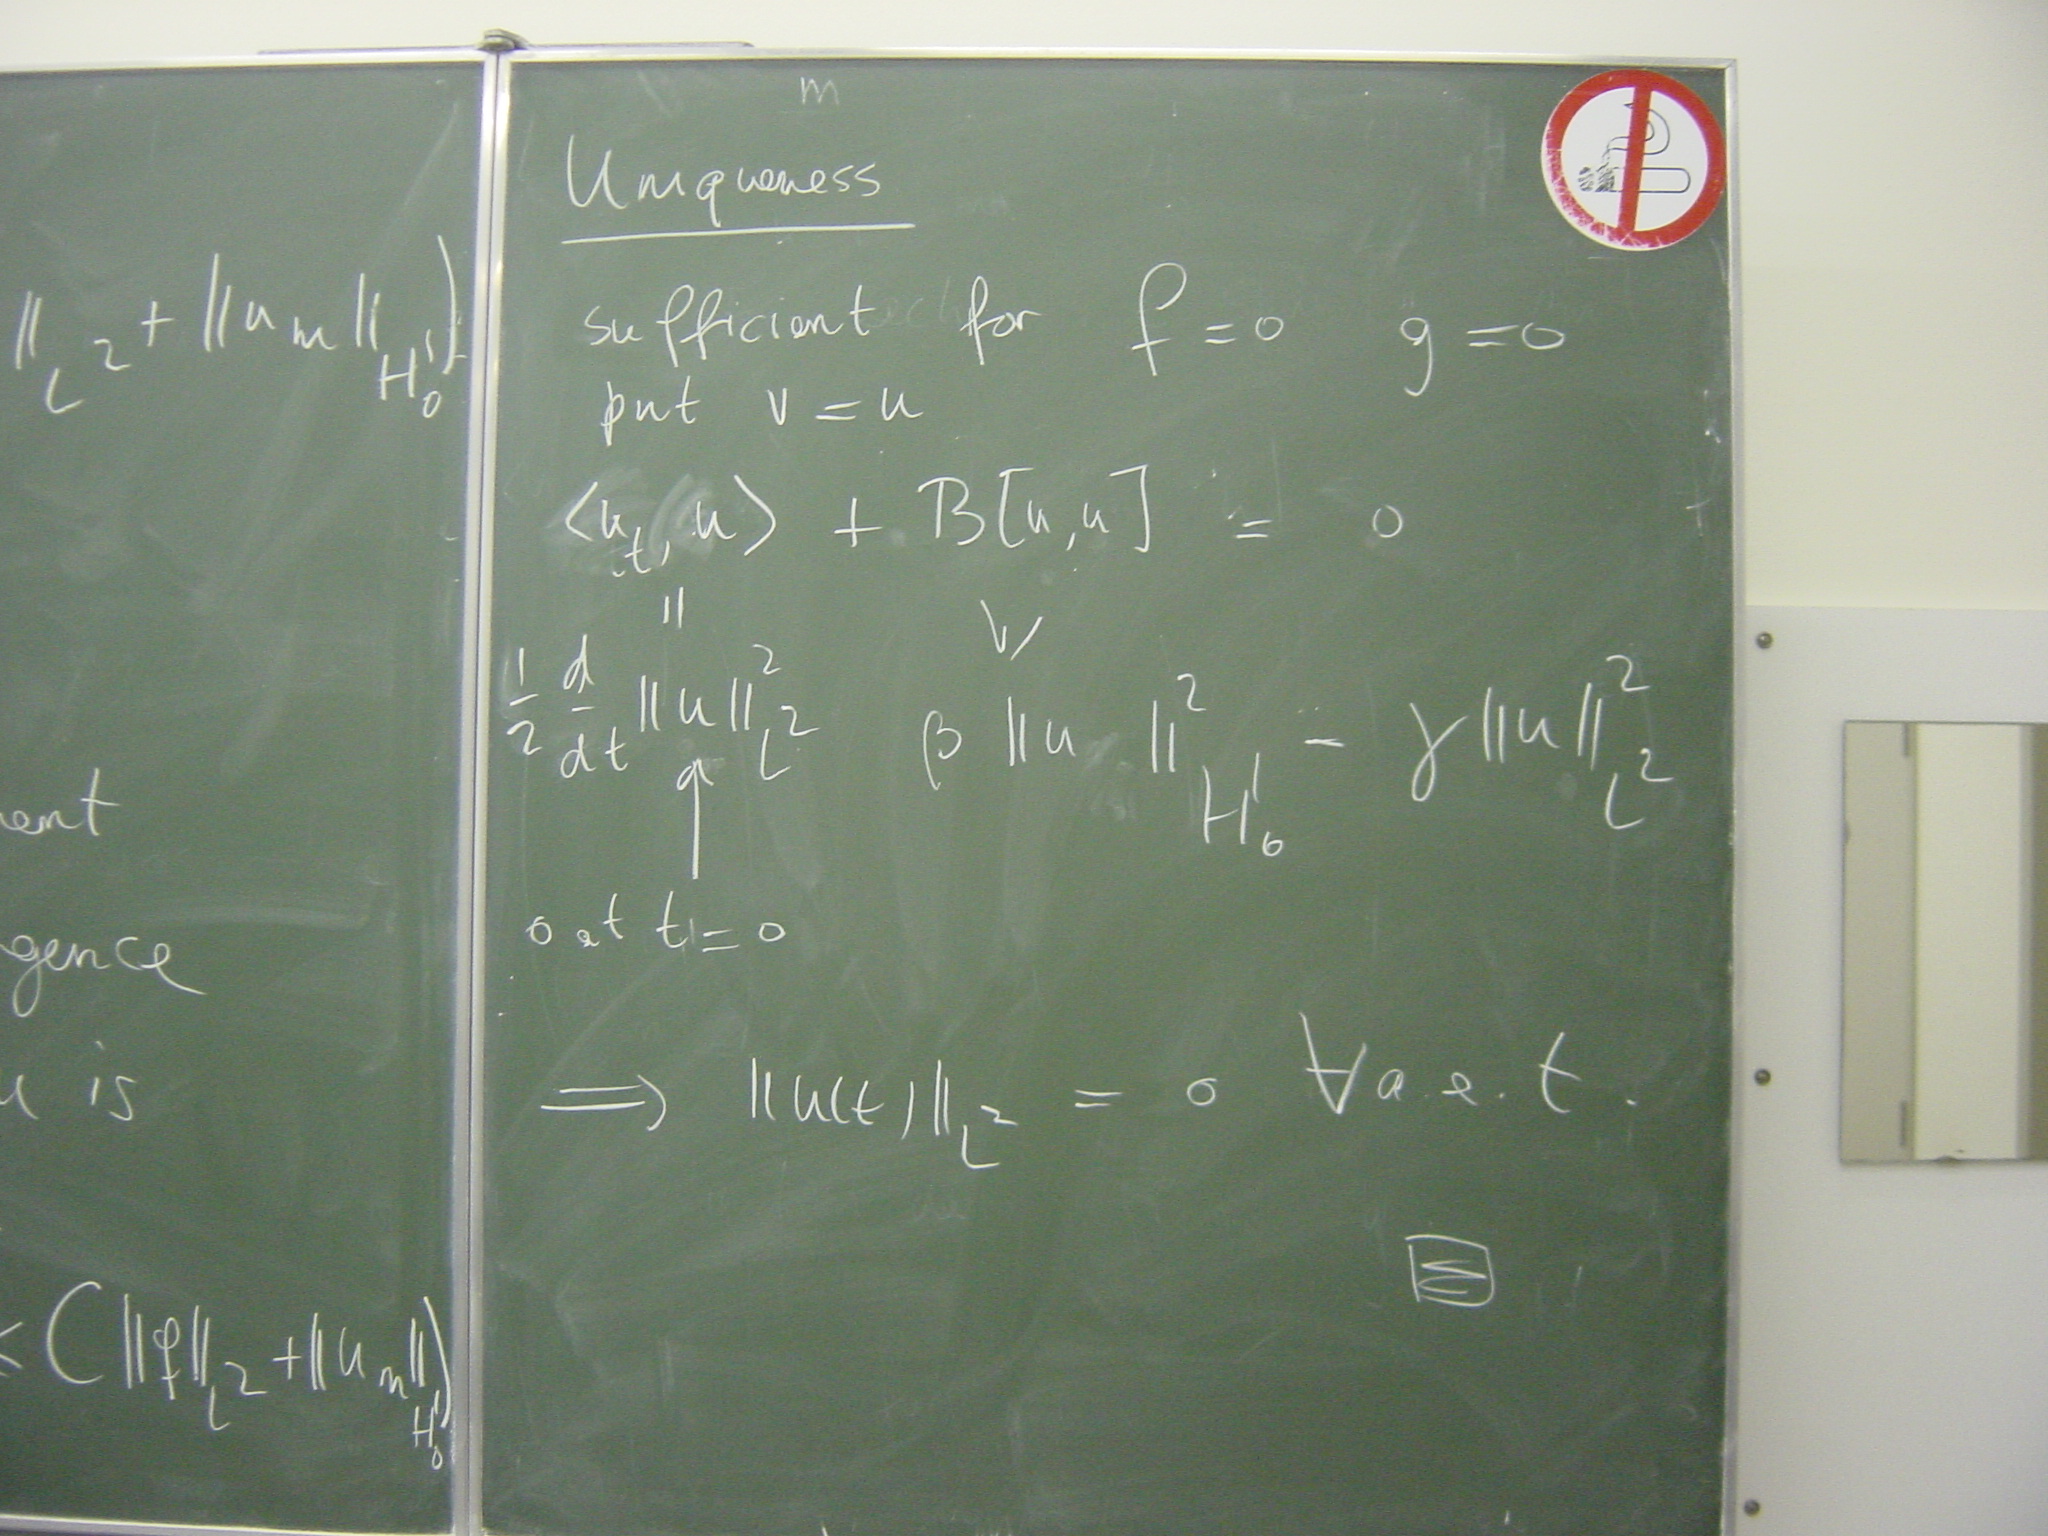 ‖_{L^2} + ‖u_m‖_{H_0^1})
gence
u is
< C(‖f‖_{L^2} + ‖u_m‖_{H_0^1})
m
Uniqueness
sufficient for f = 0 g = 0
put v = u
⟨u_t, u⟩ + B[u, u] = 0
|| V/
1/2 d/dt ‖u‖^2_{L^2} β ‖u‖^2_{H_0^1} - γ‖u‖^2_{L^2}
0 at t = 0
⟹ ‖u(t)‖_{L^2} = 0 ∀ a.e. t.